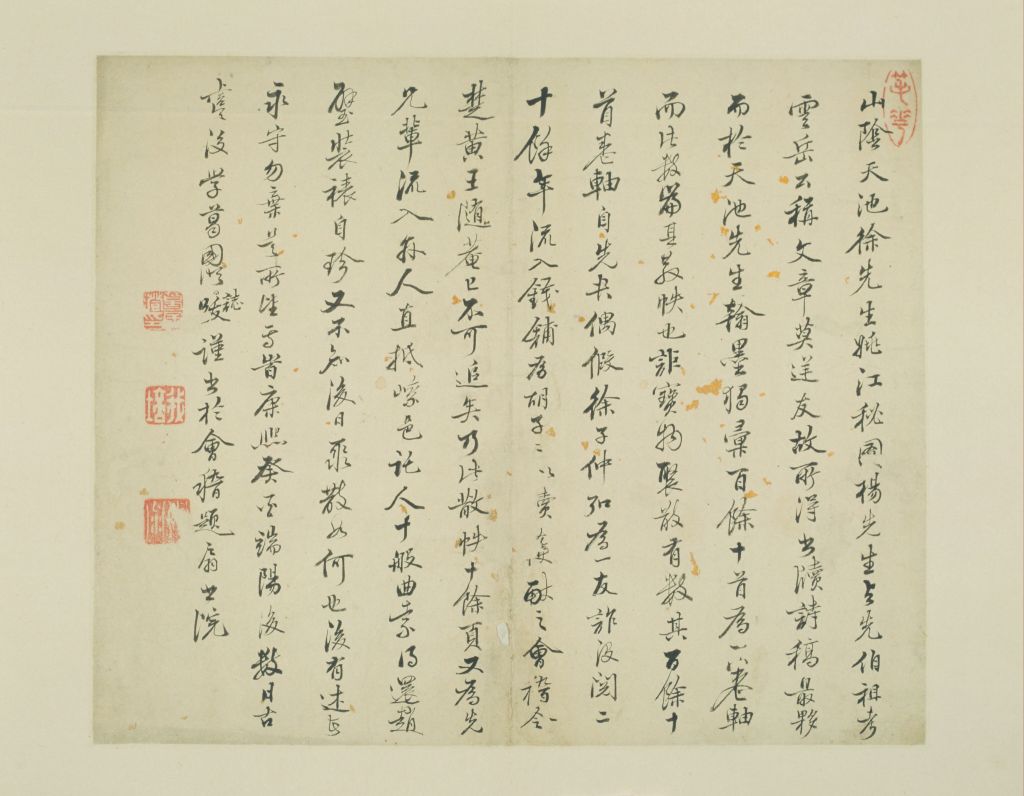 山陰天池徐先生姚江秘圖楊先生與先伯祖考
雲岳公稱文章莫逆友故所淂書牘詩稿最夥
而於天池先生翰墨獨彙百餘十首為一卷軸
而此數篇且散帙也詎寳物聚散有數其百餘十
首卷軸自先大偶假徐子仲弘為一友詐沒閱二
十餘年流入錢鋪為胡子二以賣酬之會稽令
楚黃王隨菴已不可追矣乃此散帙十餘頁又為先
兄輩流入外人直抵嵊邑託人十般曲索得還趙
璧裝裱自珍又不知後日聚散如何也後有述者
永守勿棄是所望焉旹康熙癸酉端陽後數日古
虞後學葛國謹書於會稽題扇書院
誌